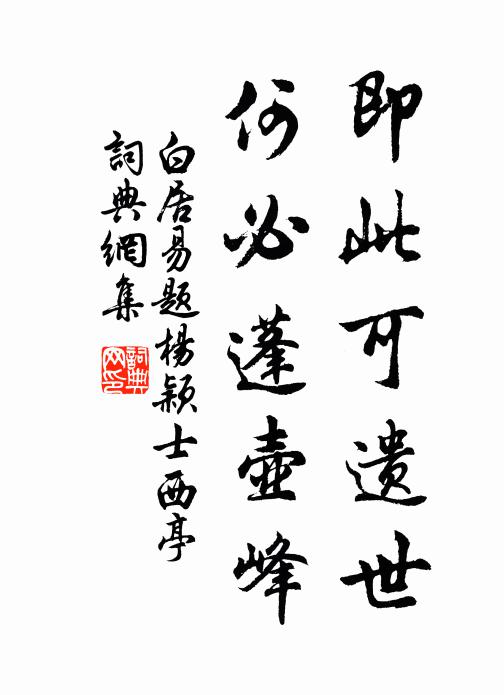 即此可遗世
何必蓬壺峰
白居易题楊颖士西亭
詞典網集
詞典网印